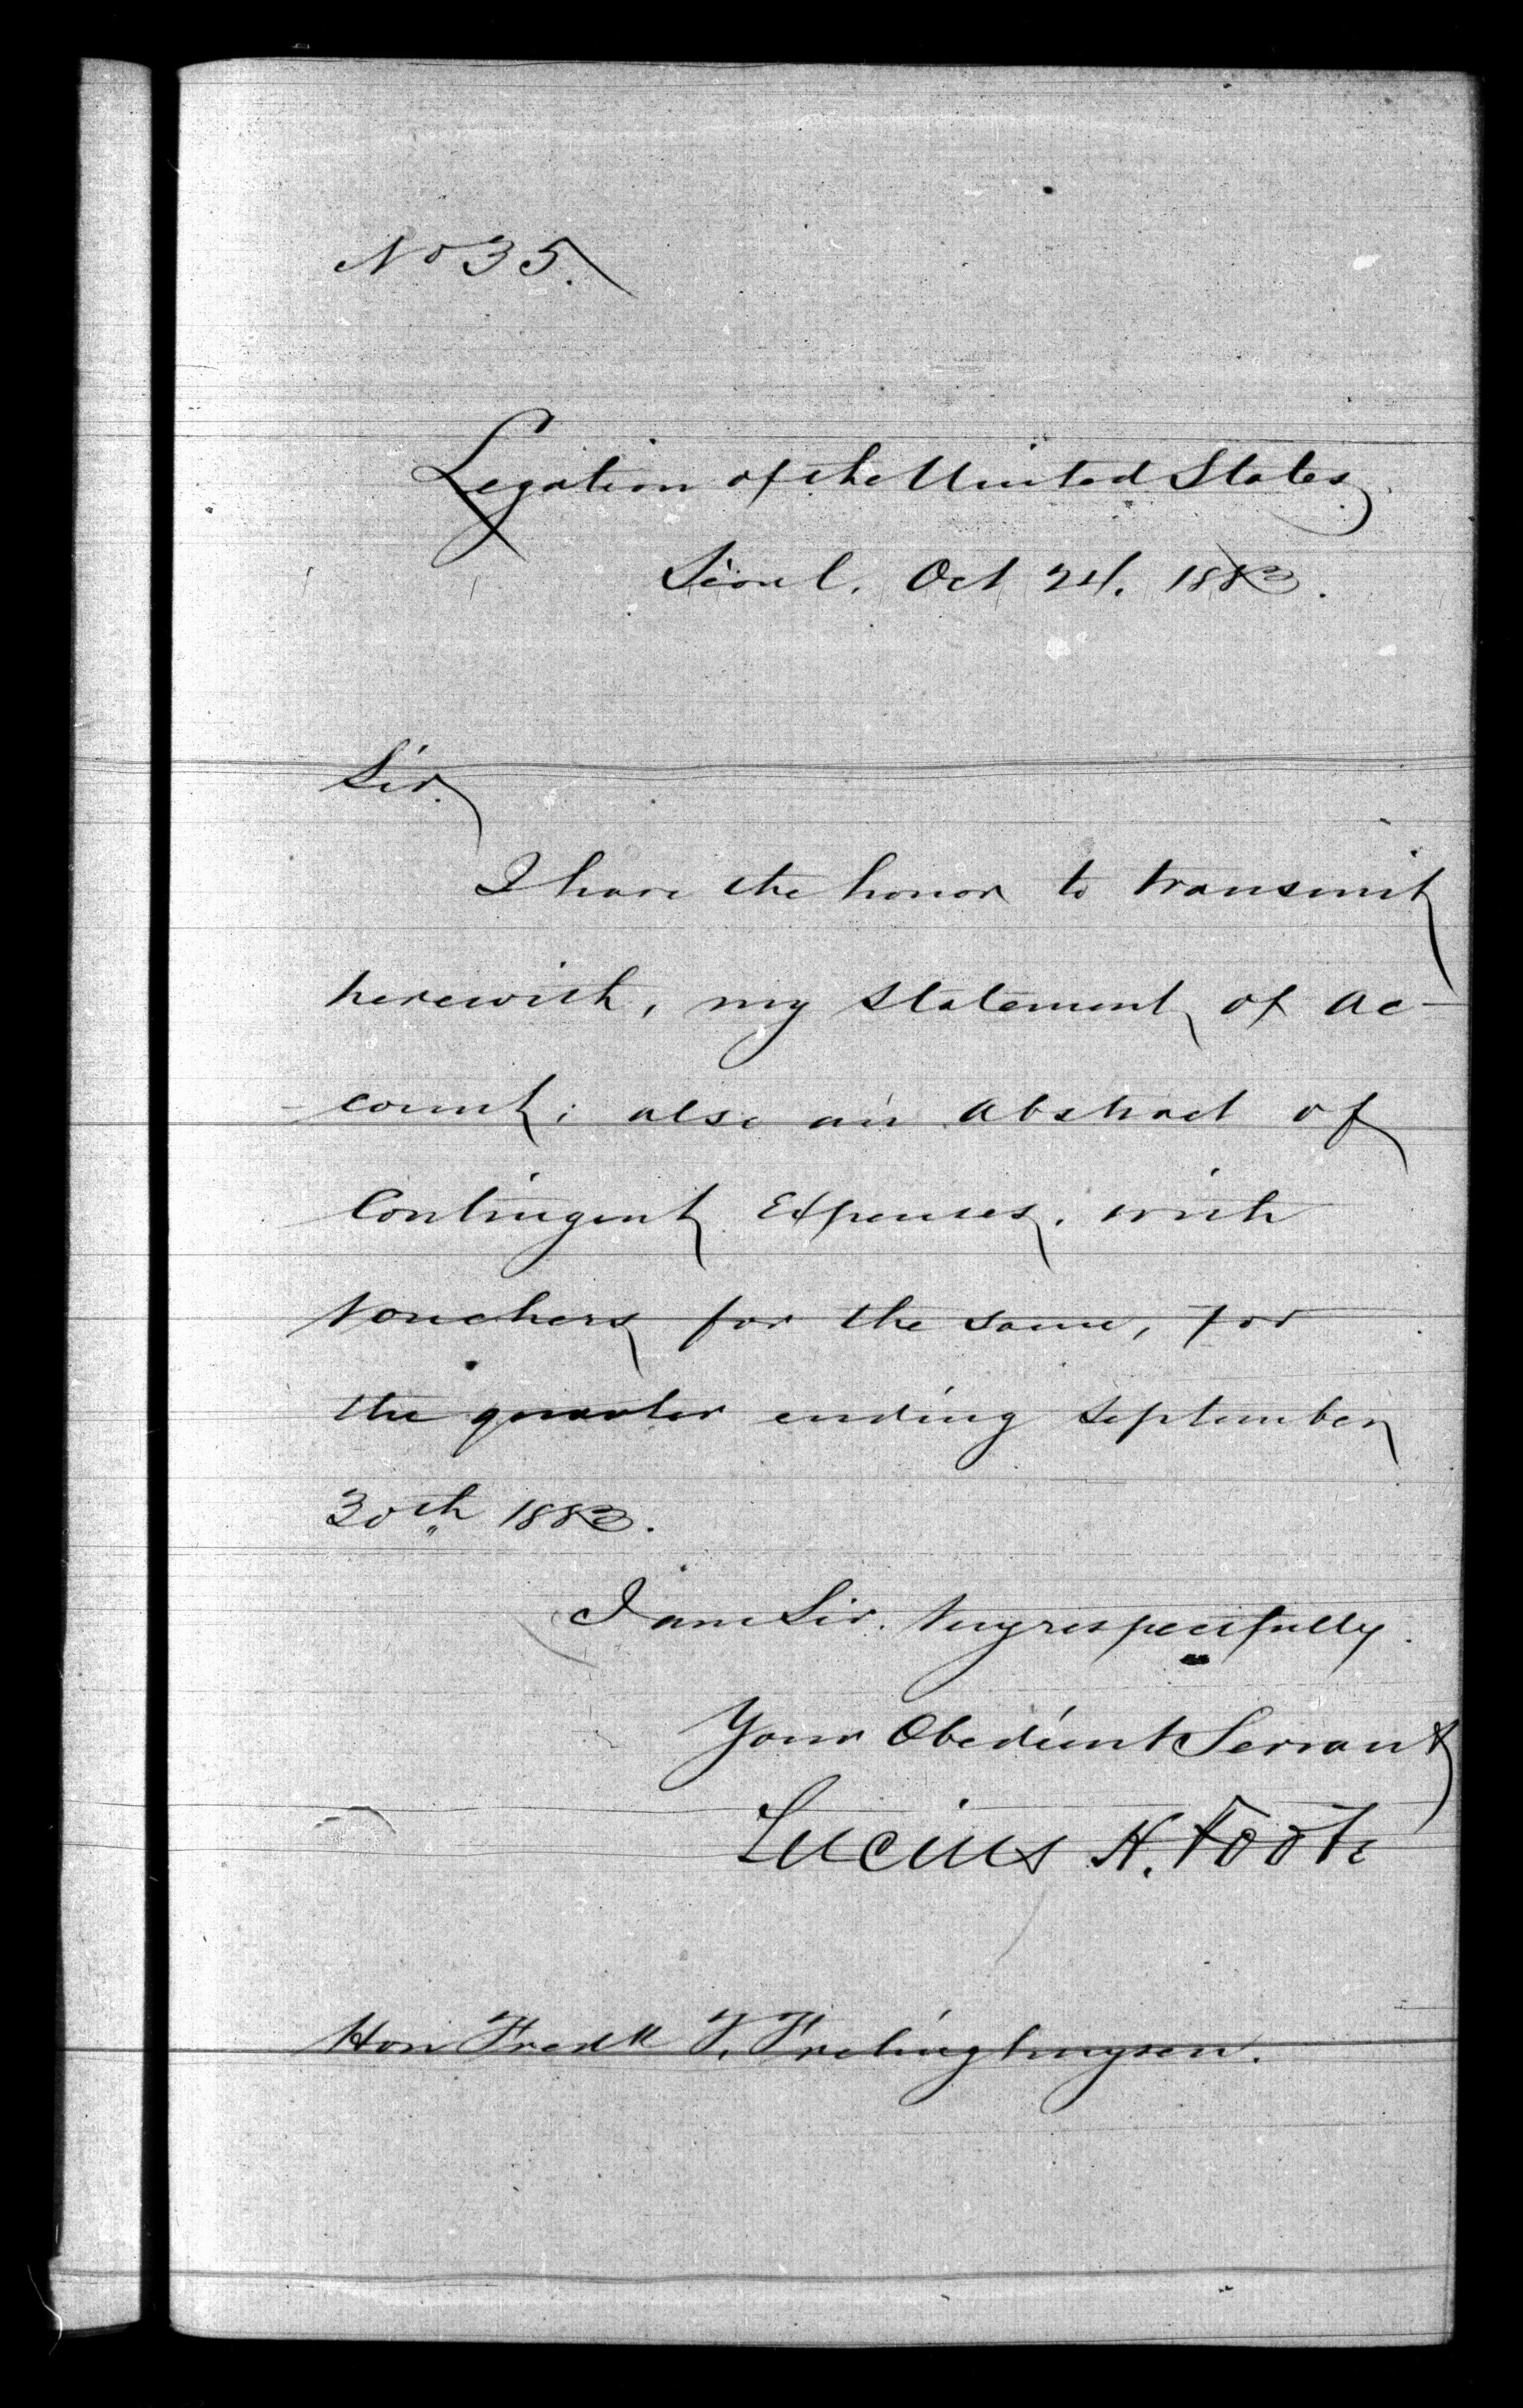 No 35.
Legation of the United States
Séoul. Oct 24. 1883.
Sir.
I have the honor to transmit
herewith, my Statement of Ac-
-count; also an Abstract of
Contingent Expenses. with
Vouchers for the same, for
the quarter ending September
30th 1883.
I am Sir. Very respectfully.
Your Obedient Servant
Lucius H. Foote
Hon Fredk T. Frelinghuysen.